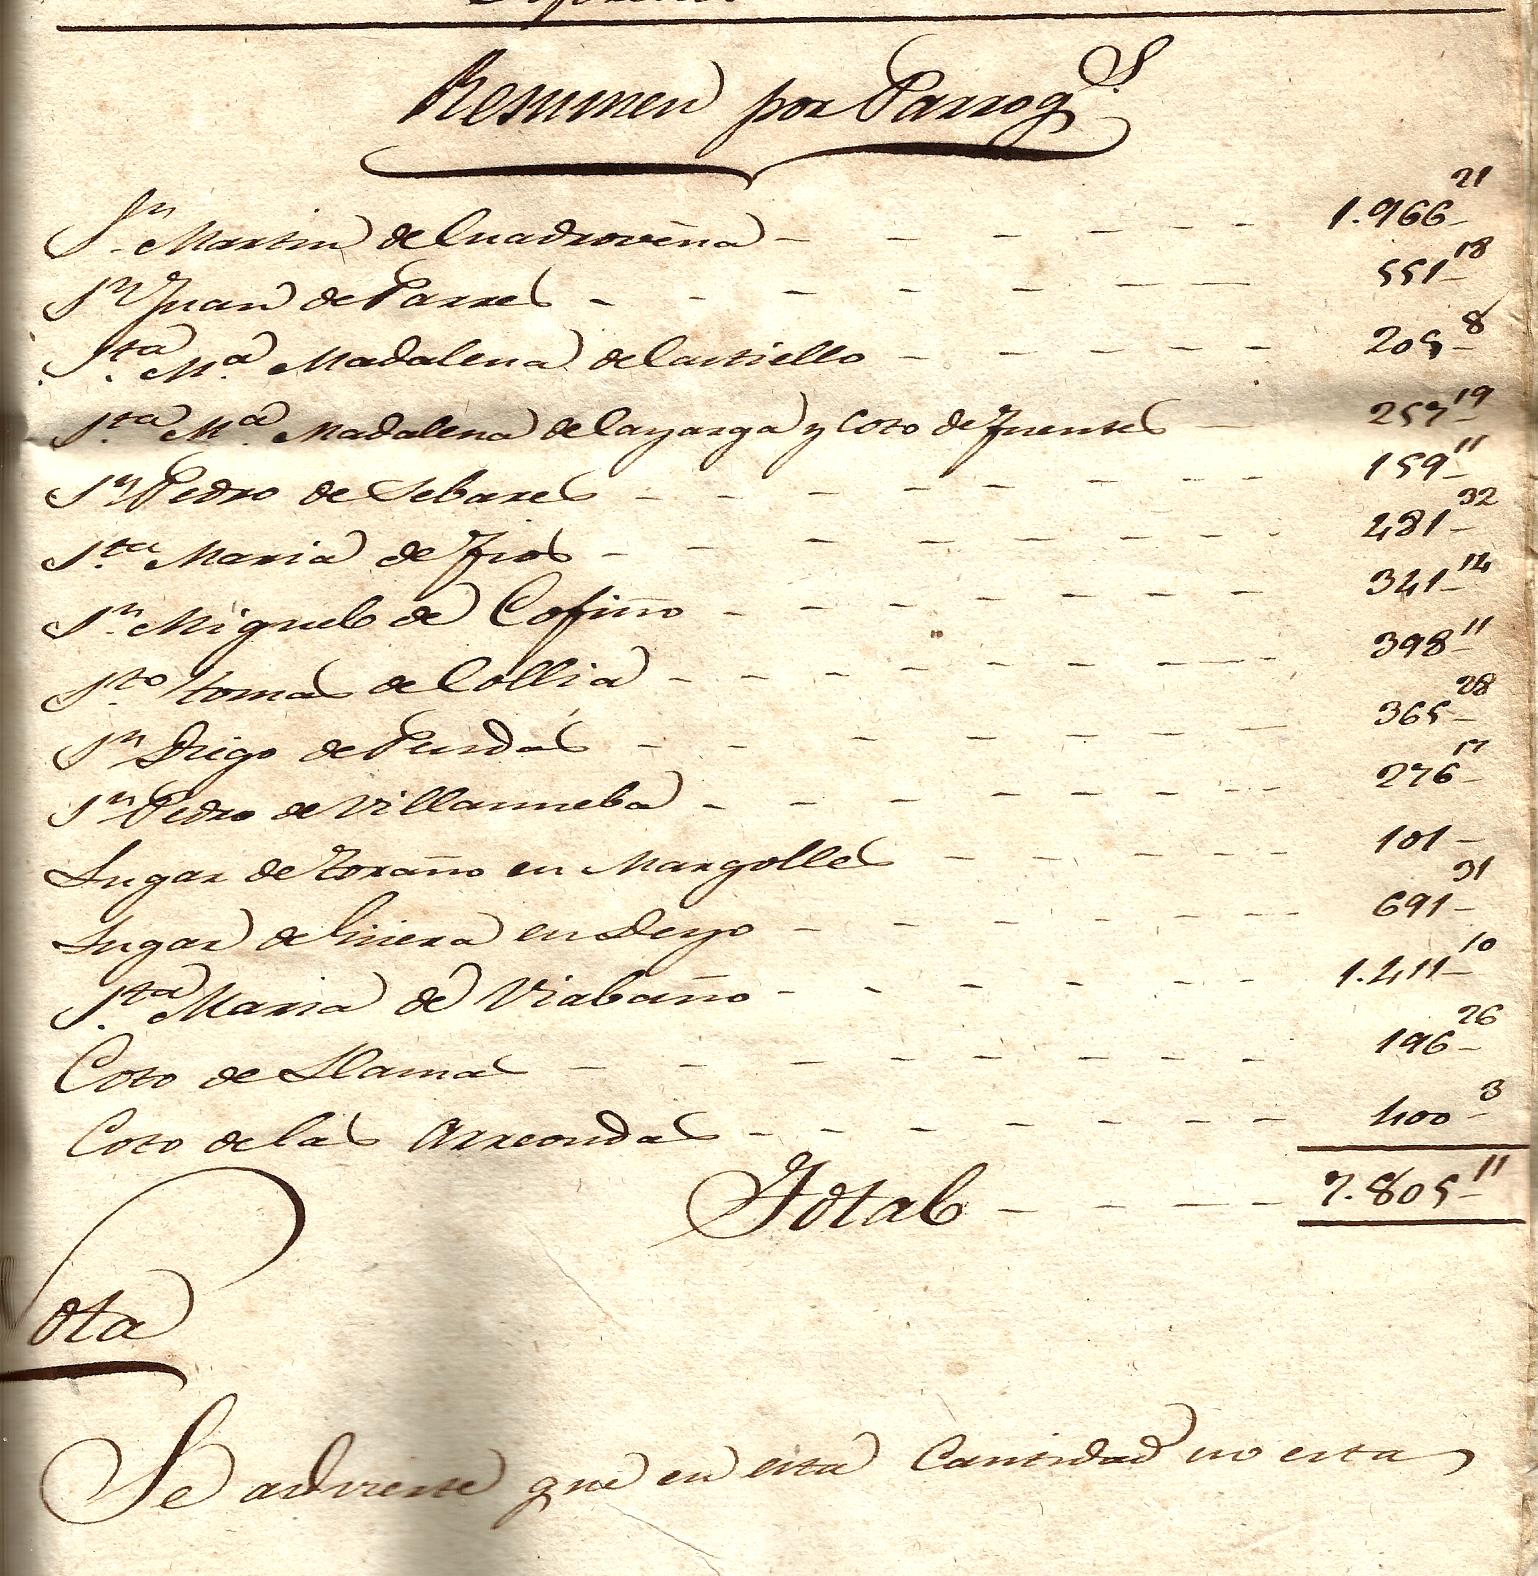 Resumen por Parrog.s
S.n Martin de Cuadroveña - - - - - - 1.966-21
S.n Juan de Parres - - - - - - - 551-18
S.ta M.a Madalena de Castiello - - - - - 205-8
S.ta M.a Madalena de Cayarga y Coto de Fuentes - 257-19
S.n Pedro de Sebares - - - - - - - - 159-11
S.ta Maria de Fios - - - - - - - - 481-32
S.n Miguel de Cofiño - - - - - - - 341-14
S.to tomas de Collia - - - - - - - 398-11
S.n Diego de Pendás - - - - - - - 365-28
S.n Pedro de Villanueba - - - - - - - 276-17
Lugar de Toraño en Margolles - - - - - 101-
Lugar de Griera en Deyo - - - - - - 691-31
S.ta Maria de Viabaño - - - - - - 1.411-10
Coto de Llamas - - - - - - - - 196-26
Coto de las Arreondas - - - - - - - 400-3
Total - - - - 7.805-11
Nota
Se advierte que en esta Cantidad no esta